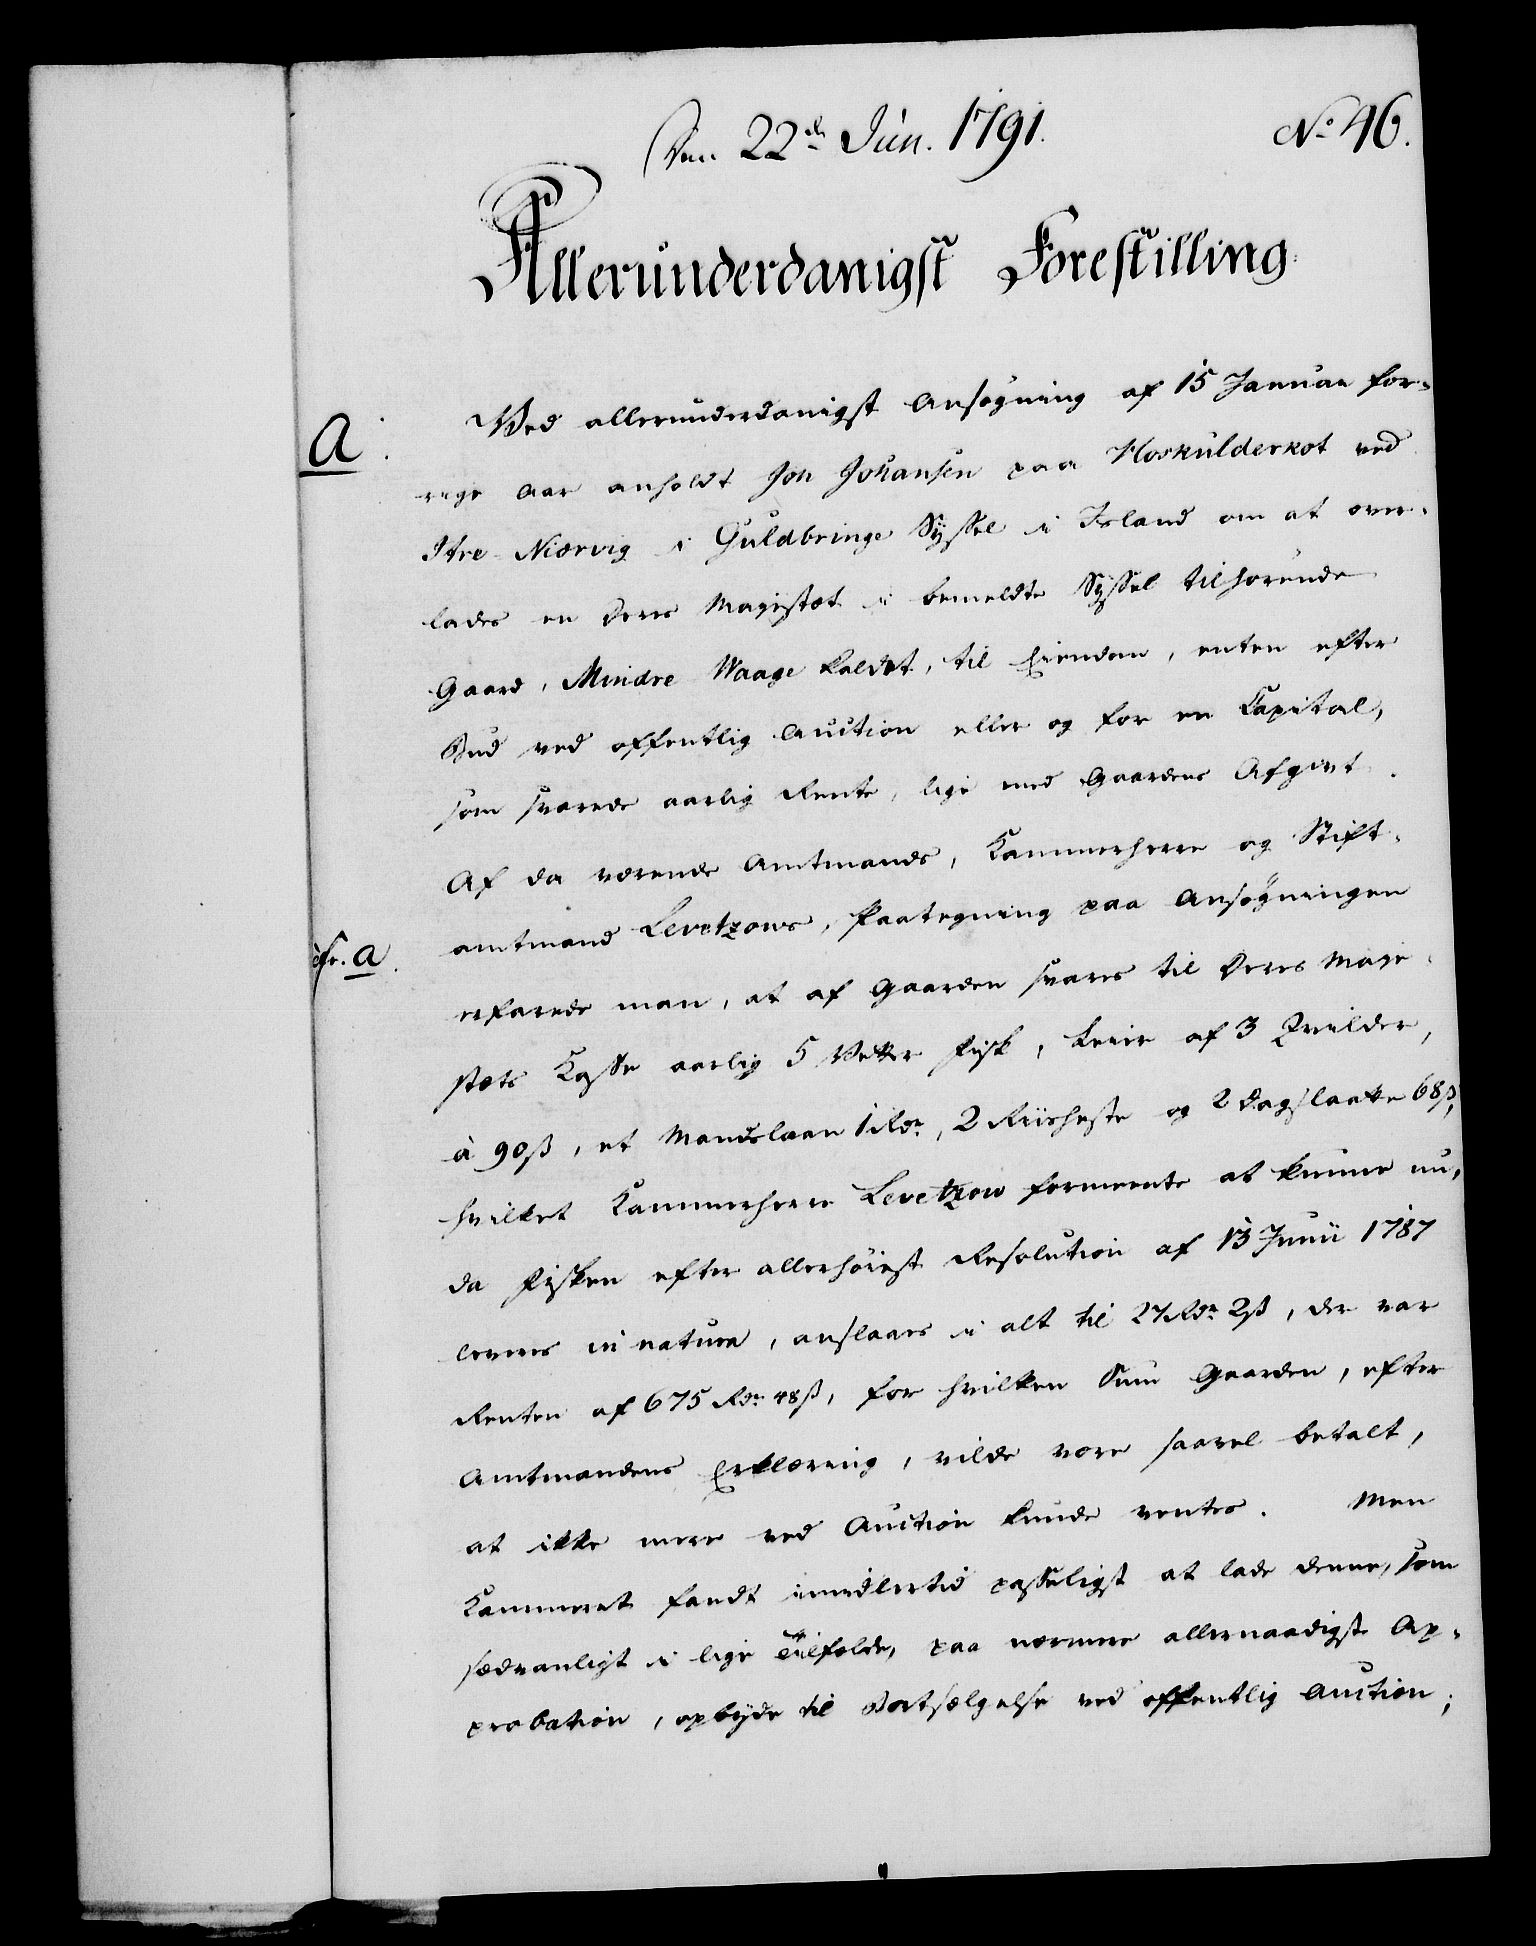 Den 22de Jun. 1791.
No 46.
Allerunderdanigst Forestilling.
a.
Ved allerunderdanigst Ansøgning af 15 Januar for-
rige Aar anholdt Jon Johansen paa Hoskulderkot ved
Itre-Niarvig i Guldbringe Syssel i Island om at over-
lades en Deres Majestæt i bemeldte Syssel tilhørende
Gaard, Mindre Waage kaldet, til Eiendom, enten efter
Bud ved offentlig Auction eller og for en Capital,
som svarede aarlig Rente, lige med Gaardens Afgivt.
Af da værende Amtmands, Kammerherre og Stift-
amtmand Levetzows, Paategning paa Ansøgningen
cfr. a.
erfarede man, at af Gaarden svares til Deres Maje-
stæts Casse aarlig 5 Vetter Fisk, Leie af 3 Qvilder,
à 90 ß, et Mandslaan 1 Rdr, 2 Riisheste og 2 Dagslaatter 68 ß,
hvilket Kammerherre Levetzow formeente at kunne nu,
da Fisken efter allerhøiest Resolution af 13 Junii 1787
leveres in natura, anslaaes i alt til 27 Rdr 2 ß, der var
Renten af 675 Rdr 48 ß, for hvilken Sum Gaarden, efter
Amtmandens Erklæring, vilde være saavel betalt,
at ikke mere ved Auction kunde ventes. Men
Kammeret fandt imidlertid passeligst at lade denne, som
sædvanligt i lige Tilfælde, paa nærmere allernaadigst Ap-
probation, opbyde til Bortsælgelse ved offentlig Auction;